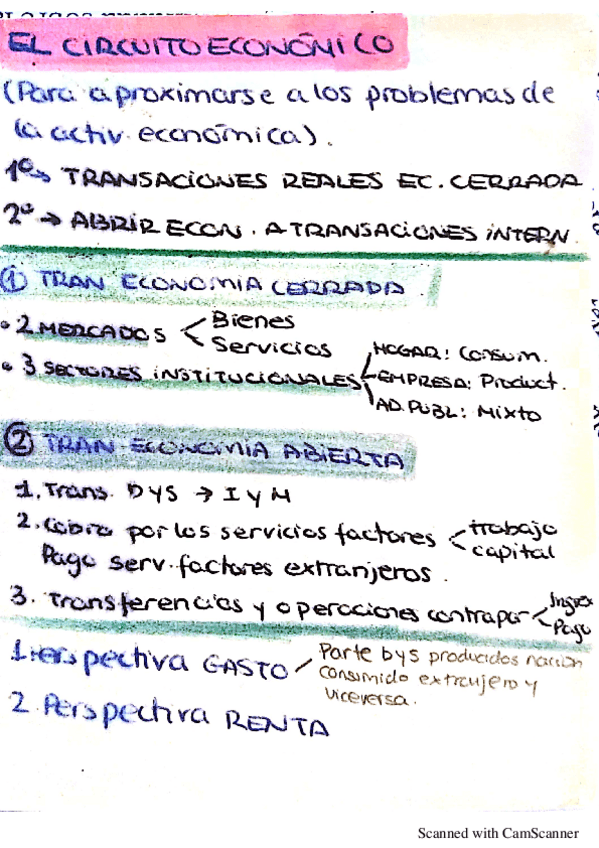 EL CIRCUITO ECONÓMICO
(Para aproximarse a los problemas de
la activ. económica).
1º → TRANSACIONES REALES EC. CERRADA
2º → ABRIR ECON. A TRANSACIONES INTERN.
① TRAN ECONOMIA CERRADA
• 2 MERCADOS < Bienes
Servicios
• 3 SECTORES INSTITUCIONALES
HOGAR: Consum.
EMPRESA: Product.
AD. PUBL: Mixto
② TRAN ECONOMIA ABIERTA
1. Trans. BYS → I y M
2. Cobro por los servicios factores < trabajo
capital
Pago serv. factores extranjeros.
3. Transferencias y operaciones contrapar < Ingres
Pago
1. Perspectiva GASTO
Parte bys producidos nación
consumido extranjero y
viceversa.
2. Perspectiva RENTA
Scanned with CamScanner